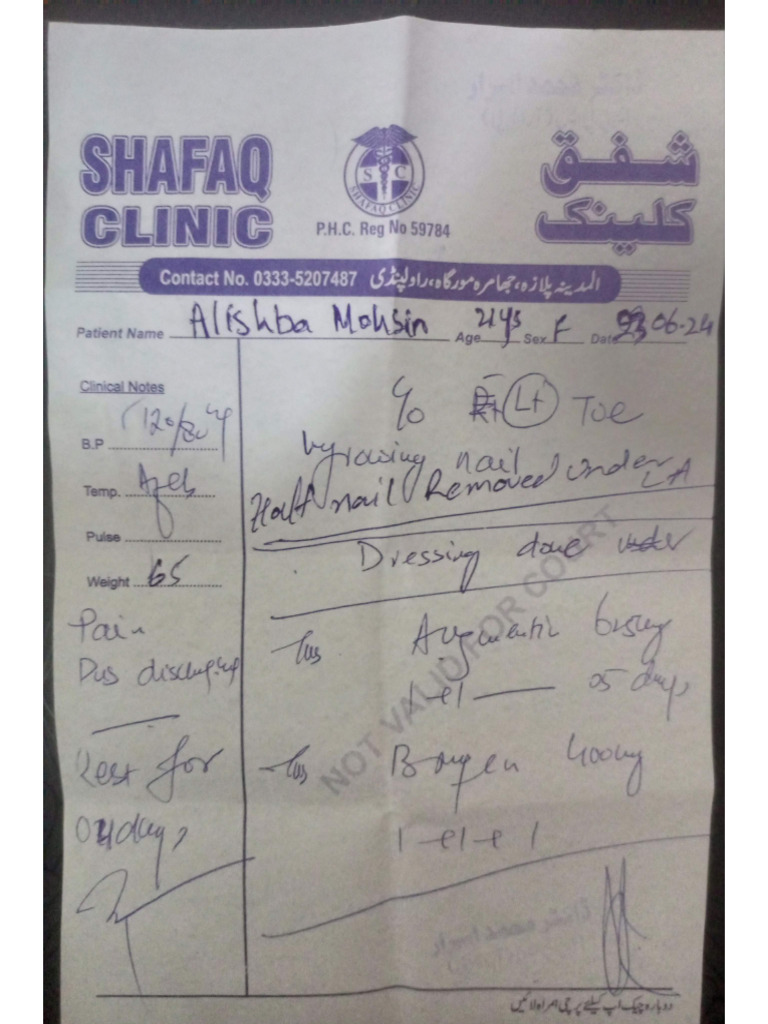 SHAFAQ CLINIC
S C
SHAFAQ CLINIC
P.H.C. Reg No 59784
شفق کلینک
Contact No. 0333-5207487 المدینہ پلازہ، جھامرہ مورگاہ، راولپنڈی
Patient Name Alishba Mohsin Age 21ys Sex F Date 23 06-24
Clinical Notes
B.P 120/80
Temp. Afeb
Pulse
Weight 65
Pain
Pus discharging
Rest for
04 days
c/o Rt Lt Toe
Ingrowing nail
Half nail Removed under LA
Dressing done under
Tus Augmentin 625mg
1-e1 05 days
Tus Brufen 400mg
1-e1-e1
NOT VALID FOR COURT
دوبارہ چیک اپ کیلئے پرچی ہمراہ لائیں